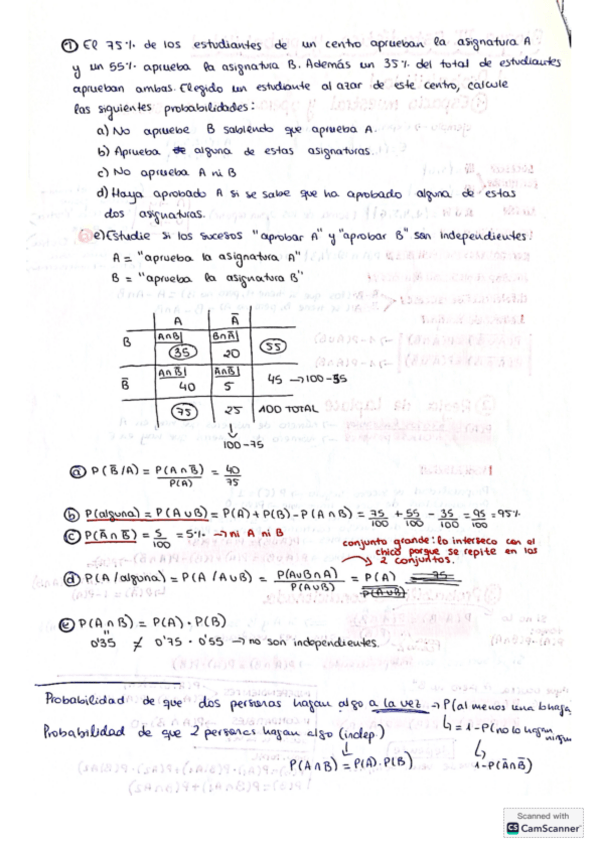 ① El 75% de los estudiantes de un centro aprueban la asignatura A
y un 55% aprueba la asignatura B. Además un 35% del total de estudiantes
aprueban ambas. Elegido un estudiante al azar de este centro, calcule
las siguientes probabilidades:
a) No apruebe B sabiendo que aprueba A.
b) Aprueba alguna de estas asignaturas.
c) No aprueba A ni B
d) Haya aprobado A si se sabe que ha aprobado alguna de estas
dos asignaturas.
e) Estudie si los sucesos "aprobar A" y "aprobar B" son independientes.
A = "aprueba la asignatura A"
B = "aprueba la asignatura B"
A Ā
B A∩B B∩Ā
35 20 55
B̄ A∩B̄ A∩B̄
40 5 45 → 100-55
75 25 100 TOTAL
↓
100-75
ⓐ P(B̄/A) = P(A∩B̄)/P(A) = 40/75
ⓑ P(alguna) = P(A∪B) = P(A) + P(B) - P(A∩B) = 75/100 + 55/100 - 35/100 = 95/100 = 95%
ⓒ P(Ā∩B̄) = 5/100 = 5% → ni A ni B
conjunto grande: lo interseco con el
chico porque se repite en los
2 conjuntos.
ⓓ P(A/alguna) = P(A/A∪B) = P(A∪B∩A)/P(A∪B) = P(A)/P(A∪B)
ⓔ P(A∩B) = P(A) · P(B)
0'35 ≠ 0'75 · 0'55 → no son independientes.
Probabilidad de que dos personas hagan algo a la vez → P(al menos una lo haga)
↳ = 1-P(no lo hagan
Probabilidad de que 2 personas hagan algo (indep.)
ningun
↓ ↳
P(A∩B) = P(A) · P(B) 1-P(Ā∩B̄)
Scanned with
CS CamScanner